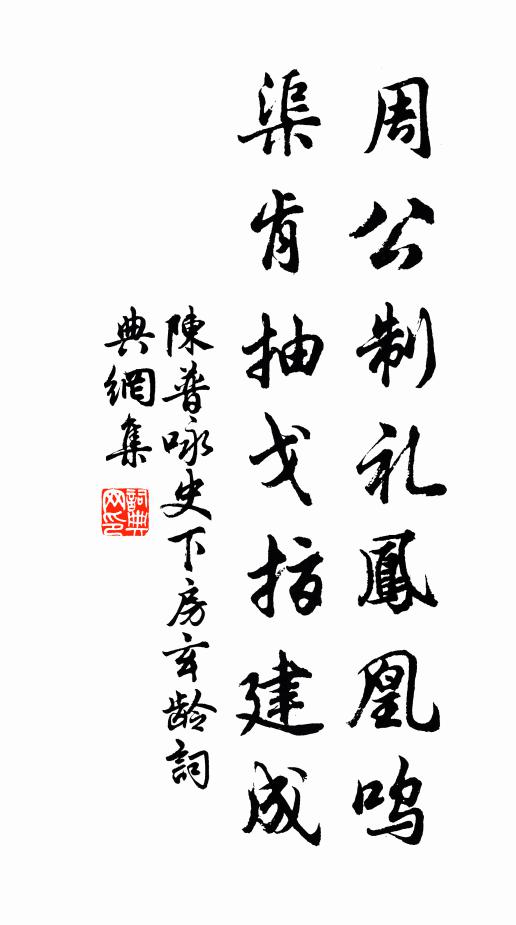 周公制礼鳳凰鸣
渠肯抽戈指建成
陳普咏史下房玄龄詞
典網集
詞典网印